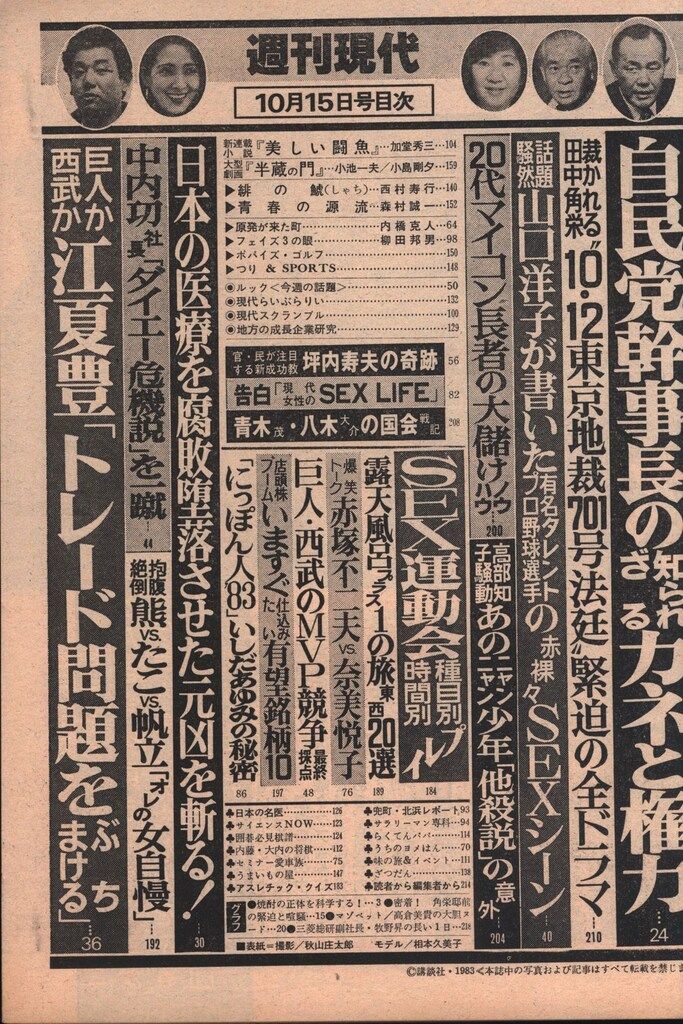 週刊現代
10月15日号目次
自民党幹事長の知られざるカネと権力…24
裁かれる田中角栄"10・12東京地裁701号法廷"緊迫の全ドラマ…210
話題騒然 山口洋子が書いた有名タレントのプロ野球選手の赤裸々SEXシーン…40
20代マイコン長者の大儲けノウハウ 200
高部知子騒動 あのニャンニャン少年「他殺説」の意外…204
新連載小説『美しい闘魚』…加堂秀三…104
大型劇画『半蔵の門』…小池一夫/小島剛夕…159
▶緋の鯱(しゃち)…西村寿行…140
▶青春の源流…森村誠一…152
▶原発が来た町…内橋克人…64
▶フェイズ3の眼…柳田邦男…98
▶ポパイズ・ゴルフ…150
▶つり & SPORTS…148
◉ルック<今週の話題>…50
◉現代らいぶらりい…132
◉現代スクランブル…100
◉地方の成長企業研究…129
官・民が注目する新成功教 坪内寿夫の奇跡 56
告白「現代女性のSEX LIFE」 82
青木茂・八木大介の国会戦記 208
SEX運動会 種目別時間別プレイ 184
露天風呂プラス1の旅 東西20選 189
爆笑トーク 赤塚不二夫VS奈美悦子 76
巨人・西武のMVP競争 最終採点 48
店頭株ブーム いますぐ仕込みたい有望銘柄10 197
「にっぽん人'83」いしだあゆみの秘密 86
日本の医療を腐敗堕落させた元凶を斬る!…30
中内功社長「ダイエー危機説」を一蹴 44
抱腹絶倒 熊vs.たこvs.帆立「オレの女自慢」…192
巨人か西武か 江夏豊「トレード問題をぶちまける」…36
♣日本の名医…126
♣サイエンスNOW…123
♣囲碁必見棋譜…124
♣内藤・大内の将棋…112
♣セミナー愛車族…75
♣うまいもの屋…147
♣アスレチック・クイズ183
♣兜町・北浜レポート93
♣サラリーマン専科…94
♣らくてんパパ…114
♣うちのヨメはん…70
♣味の旅&イベント…111
♣ざつだん…138
♣読者から編集者から214
グラフ
●焼酎の正体を科学する!…3●密着!角栄邸前の緊迫と喧騒…15●マゾペット/高倉美貴の大胆ヌード…20●三菱総研副社長・牧野昇の長い1日…218
■表紙=撮影/秋山庄太郎 モデル/相本久美子
©講談社・1983<本誌中の写真および記事はすべて転載を禁じま